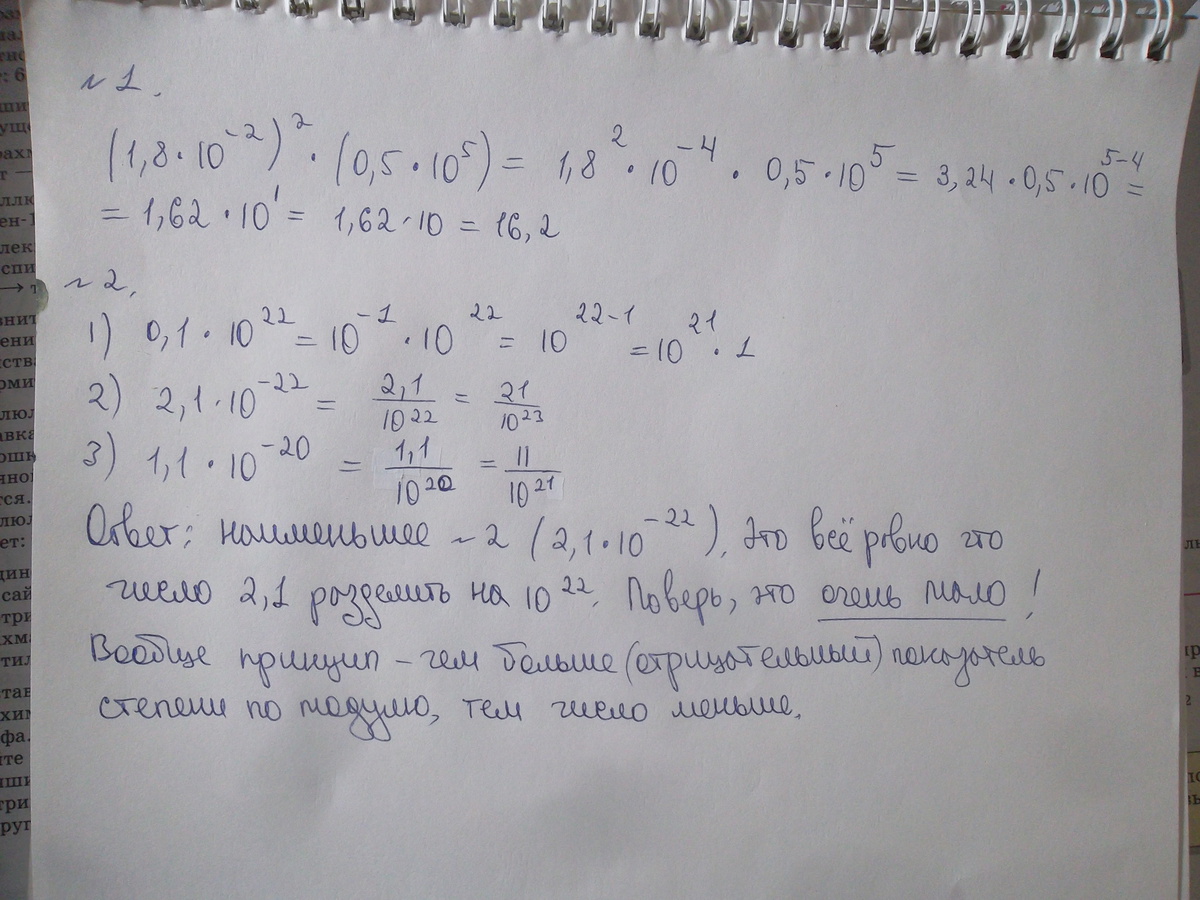 № 1.
(1,8·10⁻²)²·(0,5·10⁵) = 1,8²·10⁻⁴ · 0,5·10⁵ = 3,24·0,5·10⁵⁻⁴ =
= 1,62·10¹ = 1,62·10 = 16,2
№ 2.
1) 0,1·10²² = 10⁻¹·10²² = 10²²⁻¹ = 10²¹·1
2) 2,1·10⁻²² = 2,1/10²² = 21/10²³
3) 1,1·10⁻²⁰ = 1,1/10²⁰ = 11/10²¹
Ответ: наименьшее №2 (2,1·10⁻²²). Это всё ровно что
число 2,1 разделить на 10²². Поверь, это очень мало!
Вообще принцип – чем больше (отрицательный) показатель
степени по модулю, тем число меньше.